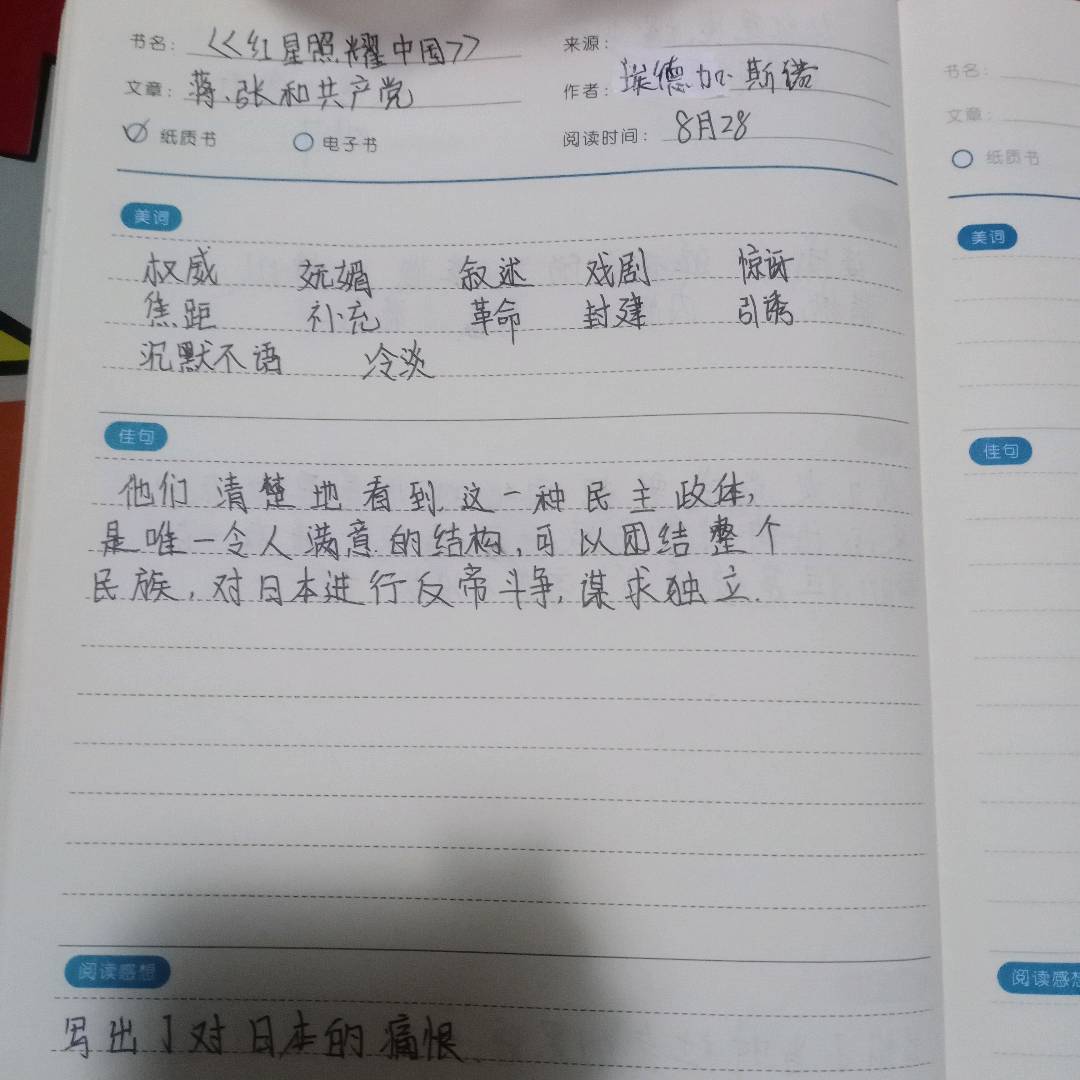 书名：《红星照耀中国》 来源：
文章：蒋、张和共产党 作者：埃德加·斯诺
纸质书 电子书 阅读时间：8月28
美词
权威 妩媚 叙述 戏剧 惊讶
焦距 补充 革命 封建 引诱
沉默不语 冷淡
佳句
他们清楚地看到这一种民主政体,
是唯一令人满意的结构,可以团结整个
民族,对日本进行反帝斗争,谋求独立.
阅读感想
写出了对日本的痛恨
书名：
文章：
纸质书
美词
佳句
阅读感想